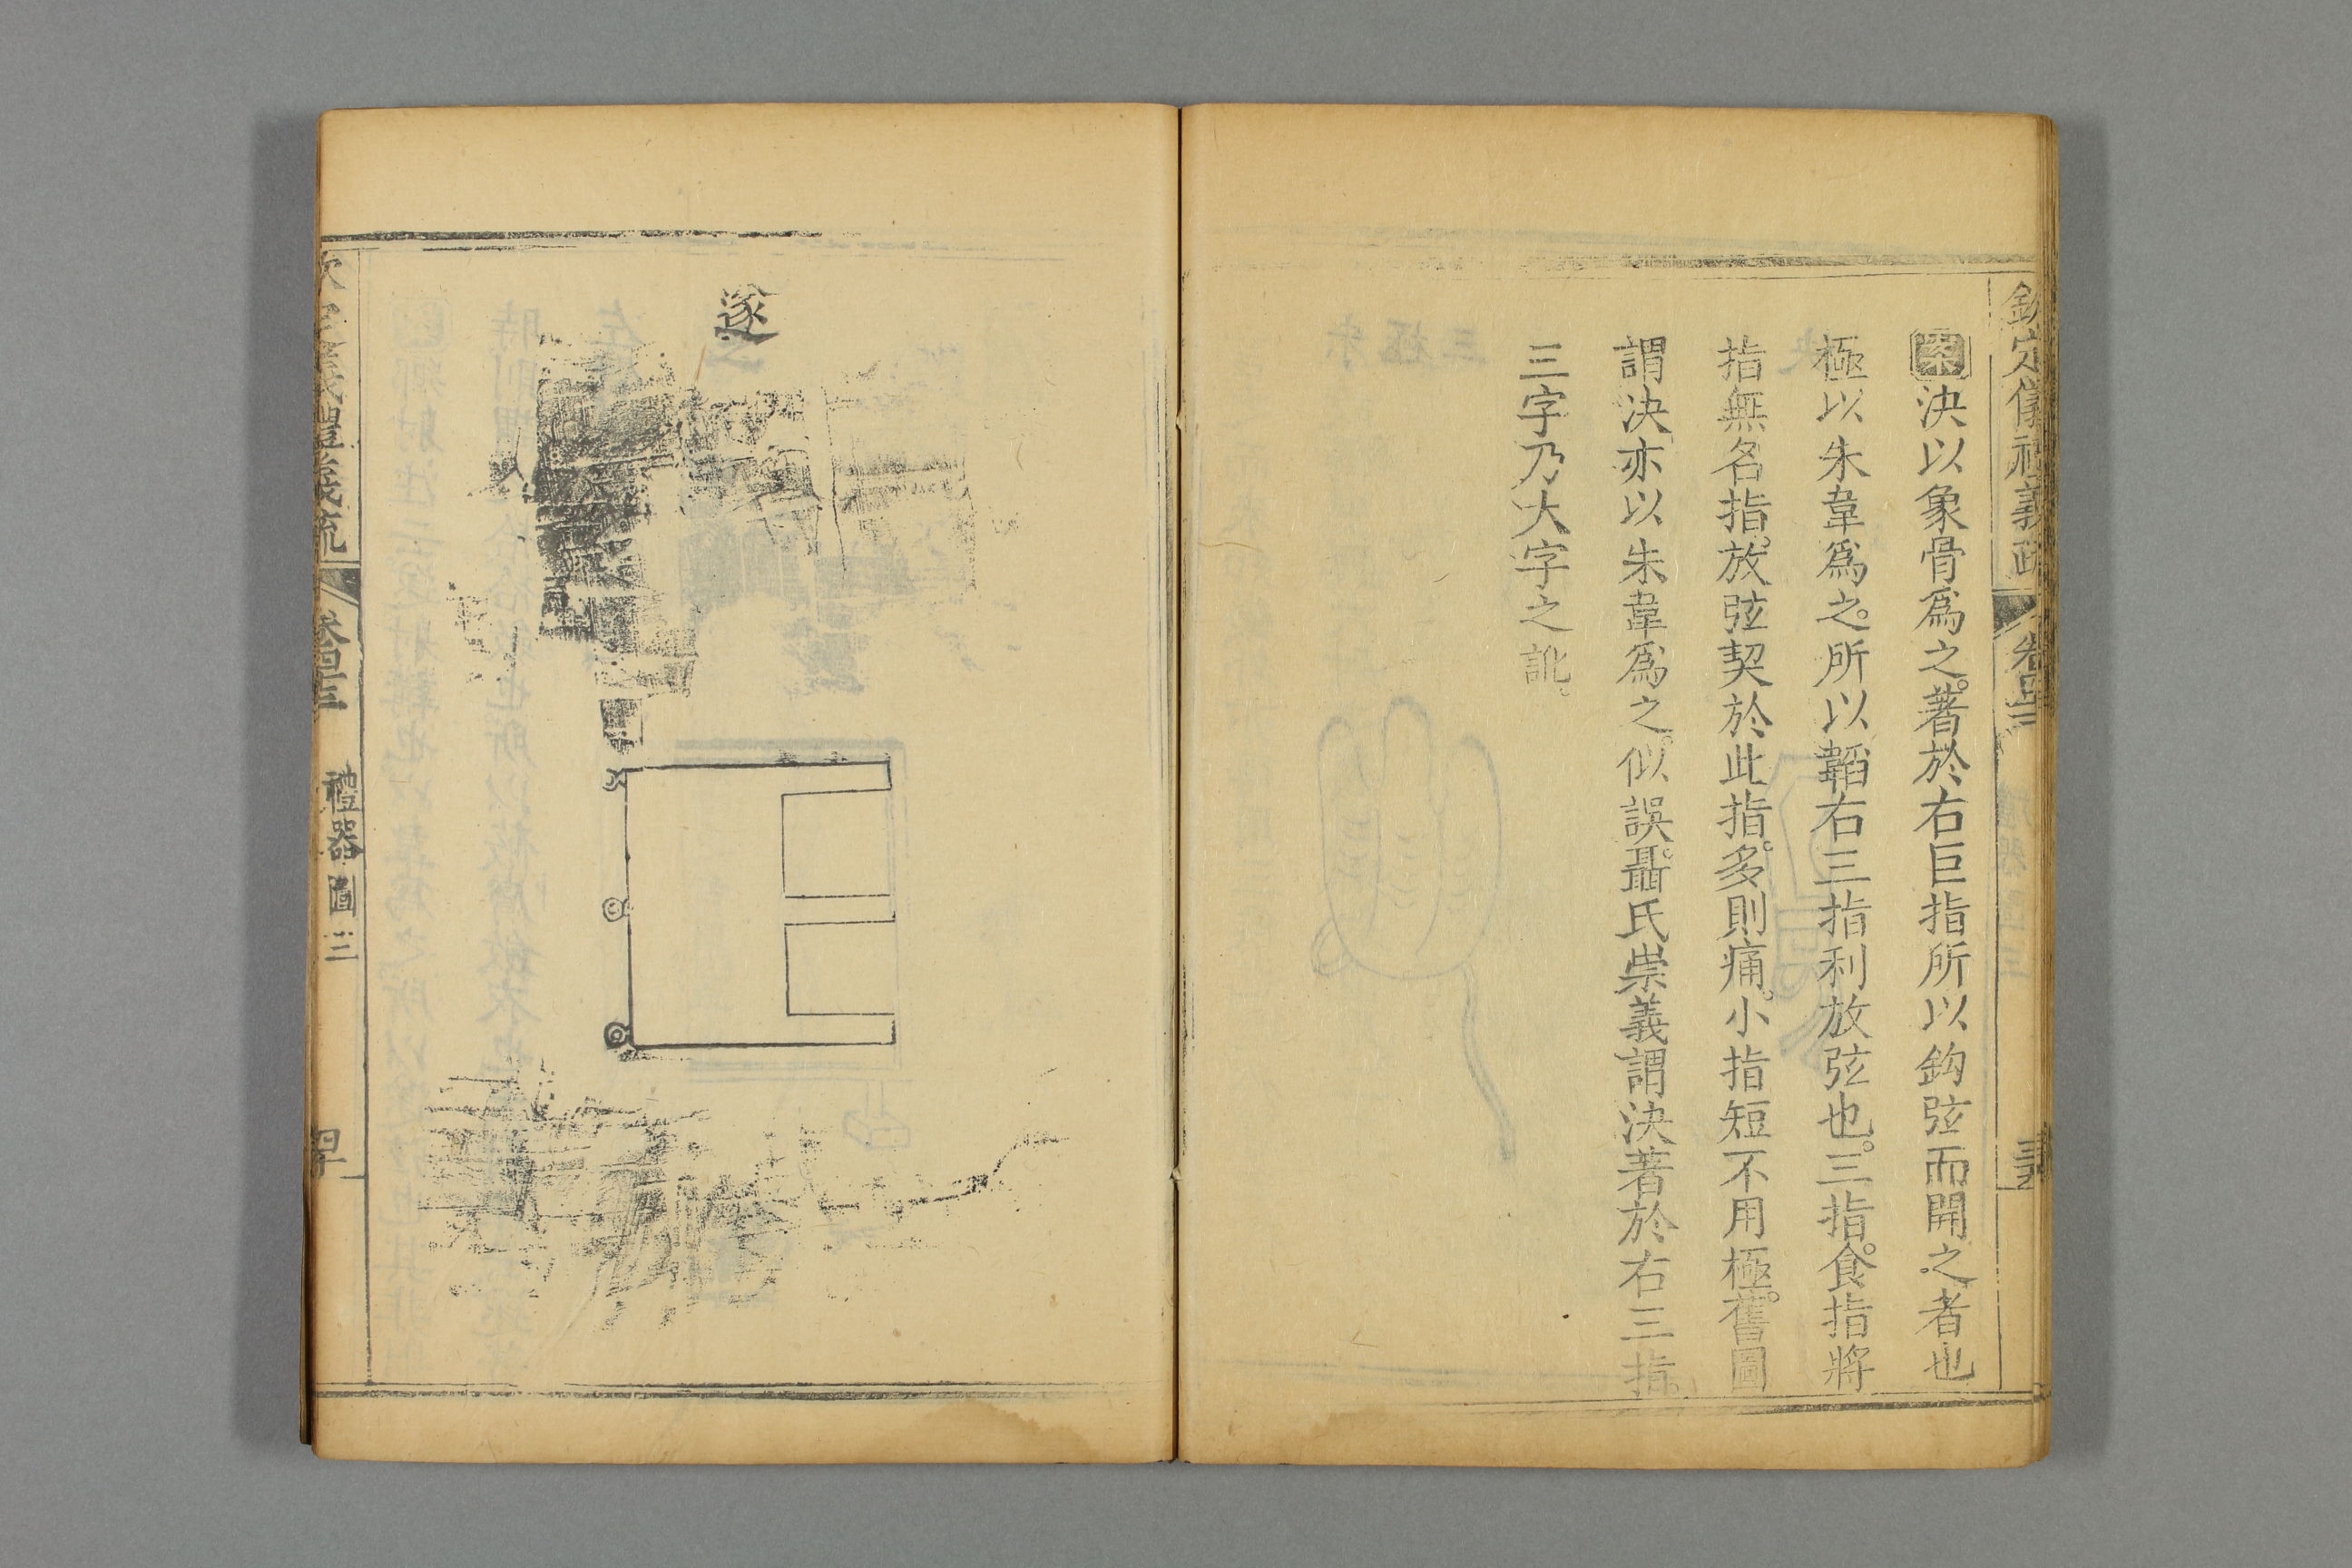 欽定儀禮義疏 卷四十三
案決以象骨爲之。著於右巨指所以鈎弦而開之者也
極以朱韋爲之。所以韜右三指利放弦也。三指。食指將
指無名指。放弦契於此指。多則痛。小指短不用極。舊圖
謂決亦以朱韋爲之。似誤。聶氏崇義謂決著於右三指。
三字乃大字之訛。
遂
定儀禮義疏 卷四十三 禮器圖三 四十